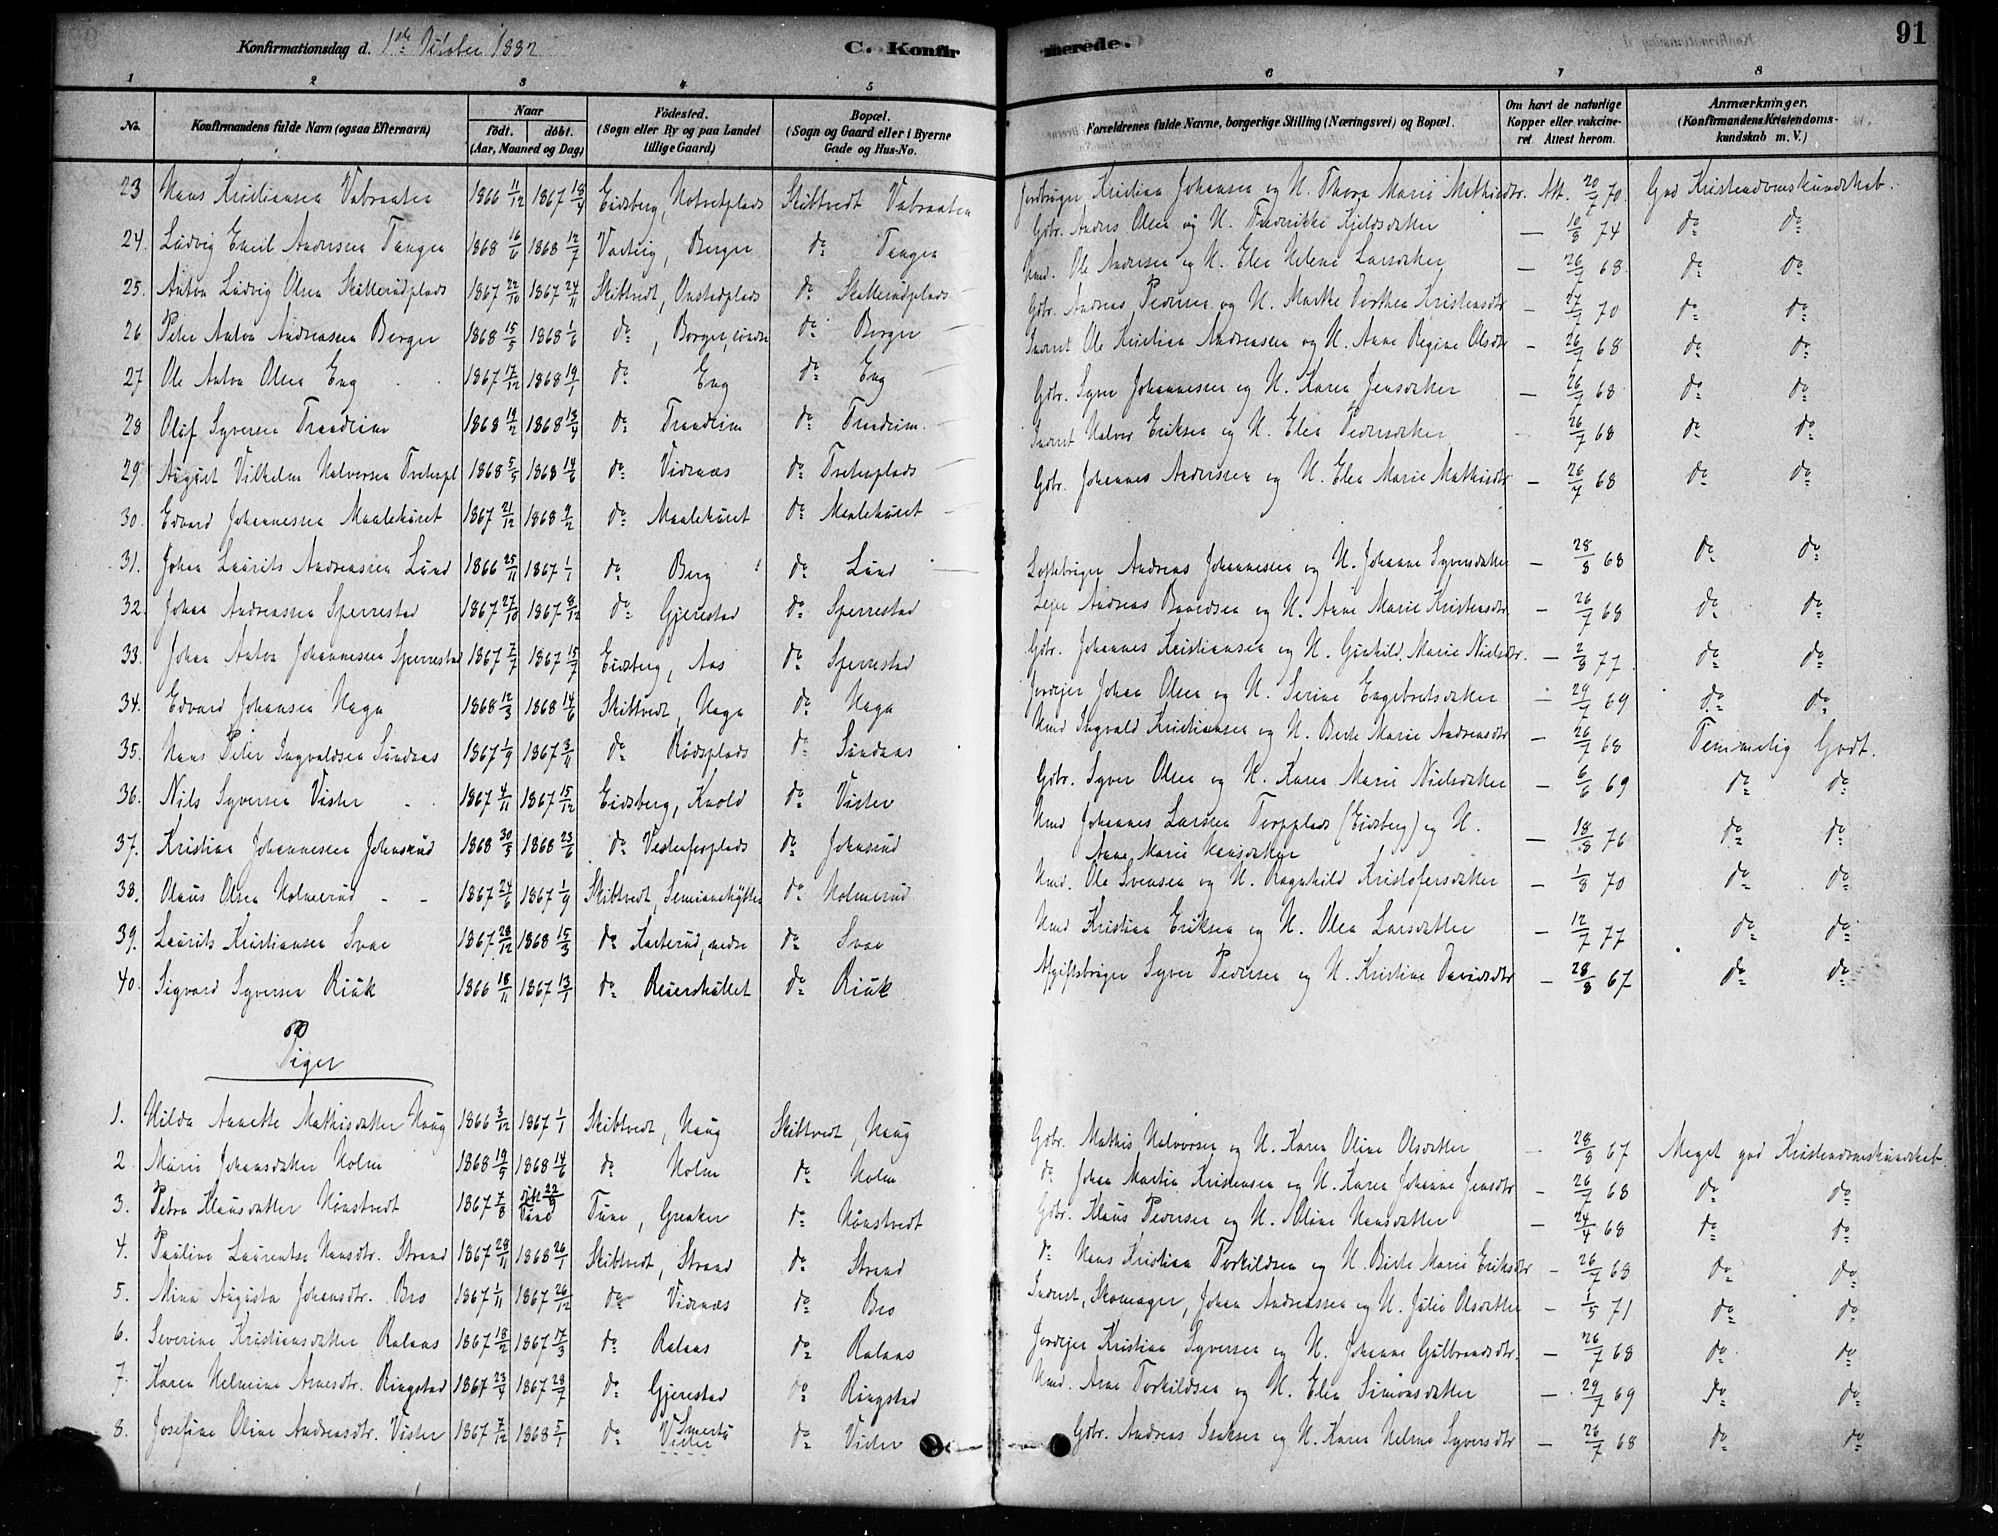 Konfirmationsdag d. 1ste Oktober 1882 C. Konfirmerede. 91
1 2 3 4 5 6 7 8
No. Konfirmandens fulde Navn (ogsaa Efternavn) Naar født. døbt. (Aar, Maaned og Dag) Fødested. (Sogn eller By og paa Landet tillige Gaard) Bopæl. (Sogn og Gaard eller i Byerne Gade og Hus-No. Forældrenes fulde Navne, borgerlige Stilling (Næringsvei) og Bopæl. Om havt de naturlige Kopper eller vakcineret Attest herom. Anmærkninger. (Konfirmandens Kristendomskundskab m. V.)
23 Hans Kristiansen Vabraaten 1866 11/12 1867 18/4 Eidsberg, Notvetplads Skibtvedt Vabraaten Jordbruger Kristian Johansen og H. Thora Marie Mathisdtr. Att. 20/7 70. God Kristendomskundskab.
24. Ludvig Emil Andersen Tangen 1868 16/6 1868 12/7 Varteig, Berger do Tangen Gdbr. Anders Olsen og H. Fredrikke Kjeldsdatter — 10/8 74 do do
25. Anton Ludvig Olsen Skallerudplads 1867 22/10 1867 24/11 Skibtvedt, Onstadplads do Skallerudplads Hmd. Ole Andersen og H. Elen Helene Larsdatter — 26/7 68 do do
26 Peter Anton Andreassen Berger 1868 15/5 1868 1/6 do, Berger, søndre do Berger Gdbr. Andreas Pedersen og H. Marthe Dorthea Kristensdtr — 27/7 70 do do
27 Ole Anton Olsen Eng 1867 17/12 1868 19/1 do Eng do Eng Inderst Ole Kristian Andreassen og H. Anne Regine Olsdtr — 26/7 68 do do
28 Olof Syversen Trandeim 1868 19/2 1868 13/4 do Trandeim do Trandeim Gdbr. Syver Johannesen og H. Karen Jensdatter — 26/7 68 do do
29. August Vilhelm Halvorsen Treterpl 1868 5/5 1868 14/6 do Vidnæs do Treterplads Inderst Halvor Eriksen og H. Elen Pedersdatter 26/7 68 do do
30. Edvard Johannessen Maalehuset 1867 21/12 1868 9/2 do Maalehuset do Maalehuset Gdbr. Johannes Anderssen og H. Elen Marie Mathisdtr — 26/7 68 do do
31. Johan Laurits Andreassen Lund 1866 25/11 1867 1/1 do Berg do Lund Andreas Johannesen og H. Johanne Syversdatter — 28/8 68 do do
32. Johan Andreassen Sperrestad 1867 27/10 1867 8/12 do Gjerestad do Sperrestad Lejer Andreas Davidsen og H. Anne Marie Kristensdtr. — 26/7 68 do do
33. Johan Anton Johannessen Sperrestad 1867 7/7 1867 15/7 Eidsberg, Aas do Sperrestad Gdbr. Johannes Kristiansen og H. Gunhild Marie Nielsdtr. — 2/8 77 do do
34. Edvard Johansen Haga 1868 12/3 1868 14/6 Skibtvedt, Haga do Haga Jordejer Johan Olsen og H. Serine Engebretsdatter — 29/7 69 do do
35. Hans Peter Ingvaldsen Sundaas 1867 1/9 1867 3/11 do Rødsplads do Sundaas Hmd Ingvald Kristiansen og H. Berte Marie Andersdtr — 26/7 68 Temmelig Godt.
36. Nils Syversen Vister 1867 4/11 1867 15/12 Eidsberg, Knold do Vister Gdbr. Syver Olsen og H. Karen Marie Nielsdatter — 6/6 69 do do
37. Kristian Johannessen Johnsrud 1868 30/3 1868 23/6 do Vestenforplads do Johnsrud Hmd Johannes Larssen Torpplads (Eidsberg) og H. Anne Marie Hansdatter — 18/8 76 do do
38. Olaus Olsen Holmerud 1867 24/6 1867 1/9 Skibtvedt, do Holmerud Hmd. Ole Svensen og H. Ragnhild Kristofersdatter — 1/8 70 do do
39. Laurits Kristiansen Svae 1867 28/12 1868 15/3 do Karterud, nedre do Svae Hmd Kristian Eriksen og H. Olea Larsdatter — 12/7 77 do do
40. Sigvard Syversen Riuk 1866 18/11 1867 13/1 do do Riuk Afgiftsbruger Syver Pedersen og H. Kristine Davidsdtr — 28/8 67 do do
Piger
1. Hilda Annette Mathisdatter Haug 1866 3/12 1867 1/1 Skibtvedt, Haug Skibtvedt, Haug Gdbr. Mathis Halvorsen og H. Karen Oline Olsdatter — 28/8 67 Meget god Kristendomskundskab
2 Marie Johansdatter Holm 1868 19/5 1868 14/6 do Holm do Holm do Johan Martin Kristensen og H. Karen Johanne Jensdtr — 26/7 68 do do
3. Petra Klausdatter Hønstvedt 1867 7/8 22/9 Tune Tune, Greaker do Hønstvedt Gdbr. Klaus Pedersen og H. Oline Hansdatter — 24/4 68 do do
4. Pauline Laurentse Hansdtr. Strand 1867 28/11 1868 26/1 Skibtvedt, Strand do Strand do Hans Kristian Torkildsen og H. Berte Marie Eriksdtr — 26/7 68 do do
5. Mina Augusta Johansdtr. Bro 1867 1/11 1867 26/12 do Vidnæs do Bro Inderst, Skomager, Johan Andreassen og H. Julie Olsdatter — 1/5 71 do do
6. Severine Kristiansdatter Ralaas 1867 18/2 1867 17/3 do Ralaas do Ralaas Jordejer Kristian Syversen og H. Johanne Gulbrandsdtr. — 26/7 68 do do
7. Karen Helmine Arnesdtr. Ringstad 1867 23/4 1867 28/7 do Gjerestad do Ringstad Hmd. Arne Torkildsen og H. Elen Simonsdatter — 29/7 69 do do
8. Josefine Oline Andreasdtr. Vister 1867 7/12 1868 5/1 do Vister Smertu do Vister Gdbr. Andreas Isaksen og H. Karen Helene Syversdtr — 26/7 68 do do